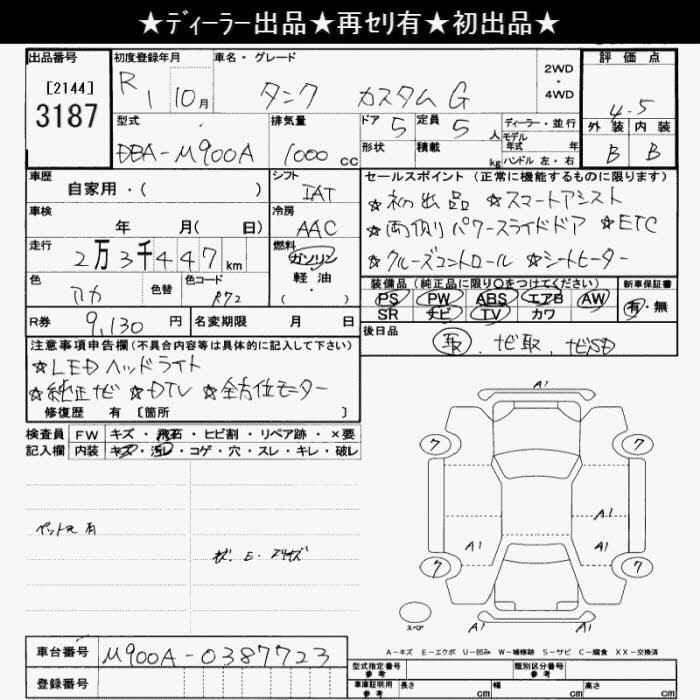 ★ディーラー出品★再セリ有★初出品★
出品番号 初度登録年月 車名・グレード 2WD・4WD 評価点
[2144]
3187
R1 10月 タンク カスタムG 4.5
型式 排気量 ドア 定員 ディーラー・並行 外装 内装
DBA-M900A 1000cc 5 5人 モデル年式 年 B B
形状 積載 kg ハンドル 左・右
車歴 シフト セールスポイント(正常に機能するものに限ります)
自家用・( ) IAT ☆初出品 ☆スマートアシスト
車検 冷房 ☆両側パワースライドドア ☆ETC
年 月( 日) AAC
走行 燃料 ☆クルーズコントロール ☆シートヒーター
2万3千447km ガソリン
軽油
・( )
色 色替 色コード 装備品(純正品に限り○をつけてください) 新車保証書
アカ R72 PS PW ABS エアB AW 有・無
SR ナビ TV カワ
R券 9,130円 名変期限 月 日 後日品
取、ナビ取、ナビSD
注意事項申告欄(不具合内容等は具体的に記入して下さい)
☆LEDヘッドライト
☆純正ナビ ☆DTV ☆全方位モニター
修復歴 有 [箇所 ]
検査員 FW キズ・飛石・ヒビ割・リペア跡・×要
記入欄 内装 キズ・汚レ・コゲ・穴・スレ・キレ・破レ
A1
7 7
A1
A1 A1
7 7
A1
スペア
A-キズ E-エクボ U-凹み W-補修跡 S-サビ C-腐食 XX-交換済
車台番号 M900A-0387723
登録番号
型式指定番号 参考 類別区分番号 参考
車庫証明用 参考 長さ cm 幅 cm 高さ cm